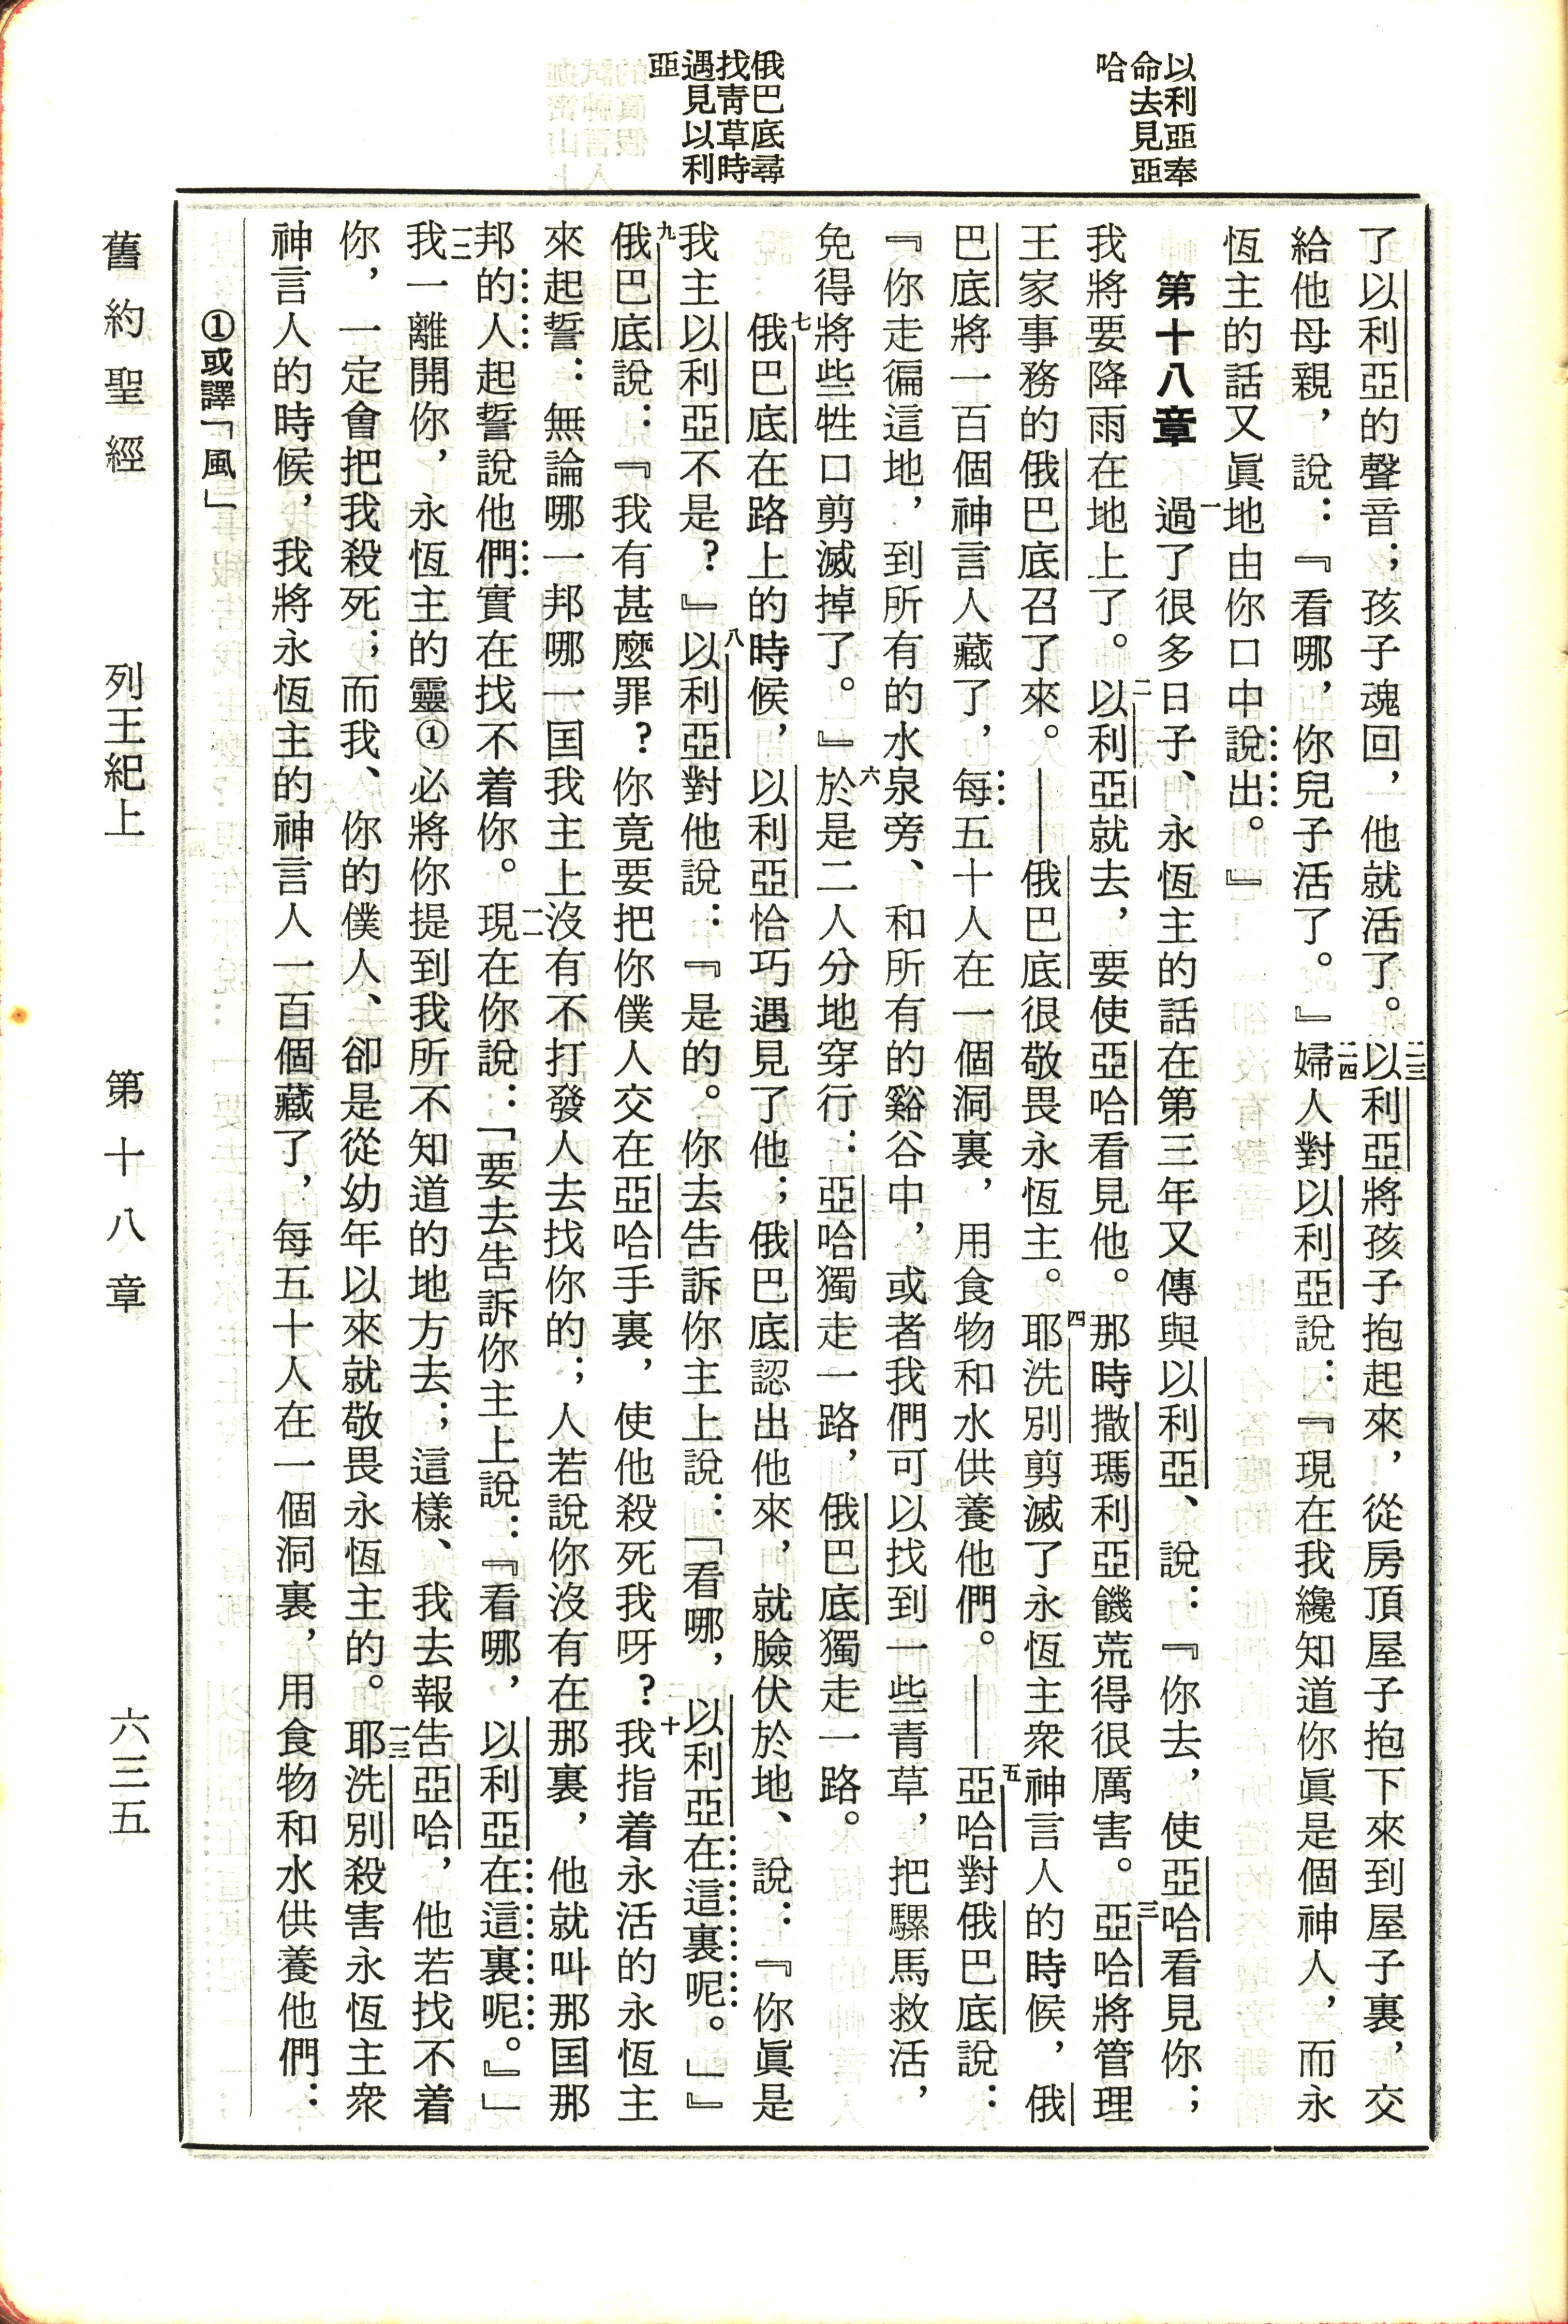 以利亞奉
命去見亞
哈
俄巴底尋
找靑草時
遇見以利
亞
了以利亞的聲音；孩子魂回，他就活了。二三以利亞將孩子抱起來，從房頂屋子抱下來到屋子裏，交
給他母親，說：『看哪，你兒子活了。』二四婦人對以利亞說：『現在我纔知道你眞是個神人，而永
恆主的話又眞地由你口中說出。』
第十八章　一過了很多日子、永恆主的話在第三年又傳與以利亞、說：『你去，使亞哈看見你；
我將要降雨在地上了。二以利亞就去，要使亞哈看見他。那時撒瑪利亞饑荒得很厲害。三亞哈將管理
王家事務的俄巴底召了來。——俄巴底很敬畏永恆主。四耶洗別剪滅了永恆主衆神言人的時候，俄
巴底將一百個神言人藏了，每五十人在一個洞裏，用食物和水供養他們。——五亞哈對俄巴底說：
『你走徧這地，到所有的水泉旁、和所有的谿谷中，或者我們可以找到一些青草，把騾馬救活，
免得將些牲口剪滅掉了。』六於是二人分地穿行：亞哈獨走一路，俄巴底獨走一路。
七俄巴底在路上的時候，以利亞恰巧遇見了他；俄巴底認出他來，就臉伏於地、說：『你眞是
我主以利亞不是？』八以利亞對他說：『是的。你去告訴你主上說：「看哪，以利亞在這裏呢。」』
九俄巴底說：『我有甚麼罪？你竟要把你僕人交在亞哈手裏，使他殺死我呀？十我指着永活的永恆主
來起誓：無論哪一邦哪一国我主上沒有不打發人去找你的；人若說你沒有在那裏，他就叫那国那
邦的人起誓說他們實在找不着你。一一現在你說：「要去告訴你主上說：『看哪，以利亞在這裏呢。』」
一二我一離開你，永恆主的靈①必將你提到我所不知道的地方去；這樣、我去報告亞哈，他若找不着
你，一定會把我殺死；而我、你的僕人、卻是從幼年以來就敬畏永恆主的。一三耶洗別殺害永恆主衆
神言人的時候，我將永恆主的神言人一百個藏了，每五十人在一個洞裏，用食物和水供養他們：
①或譯「風」
舊約聖經　列王紀上　第十八章　六三五